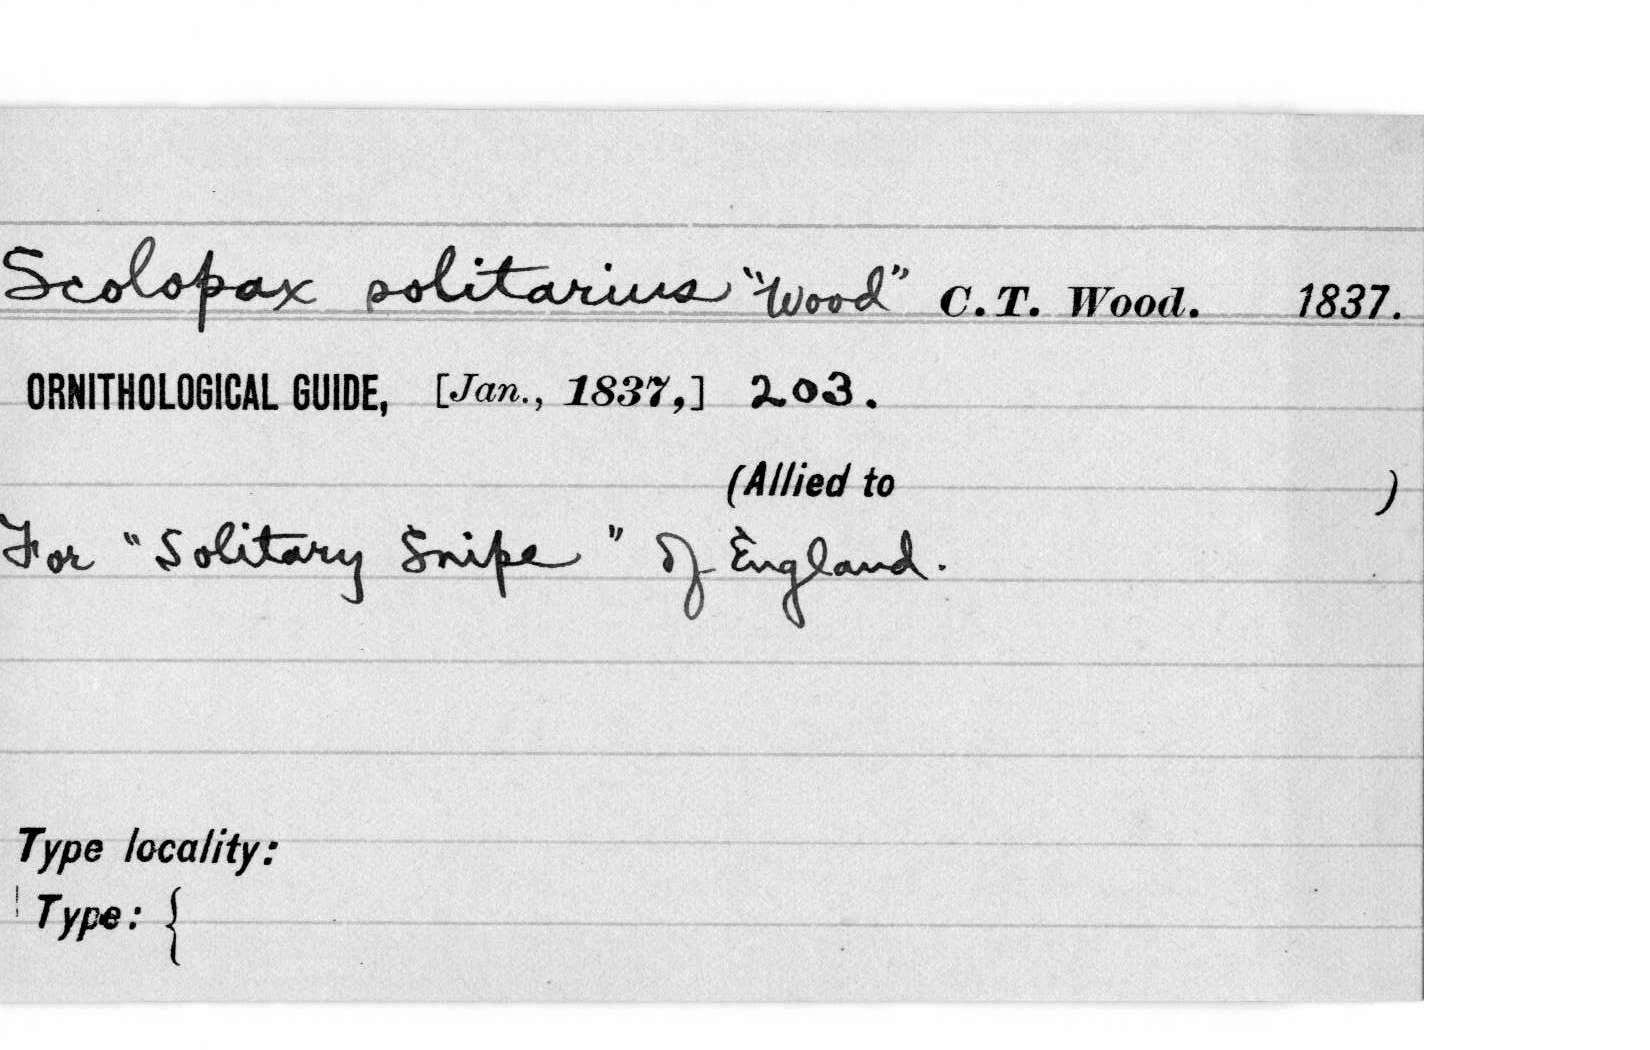 Scolopax solitarius "Wood" C.T. Wood. 1837.
ORNITHOLOGICAL GUIDE, [Jan., 1837,] 203.
(Allied to )
For "Solitary Snipe" of England.
Type locality:
Type: {